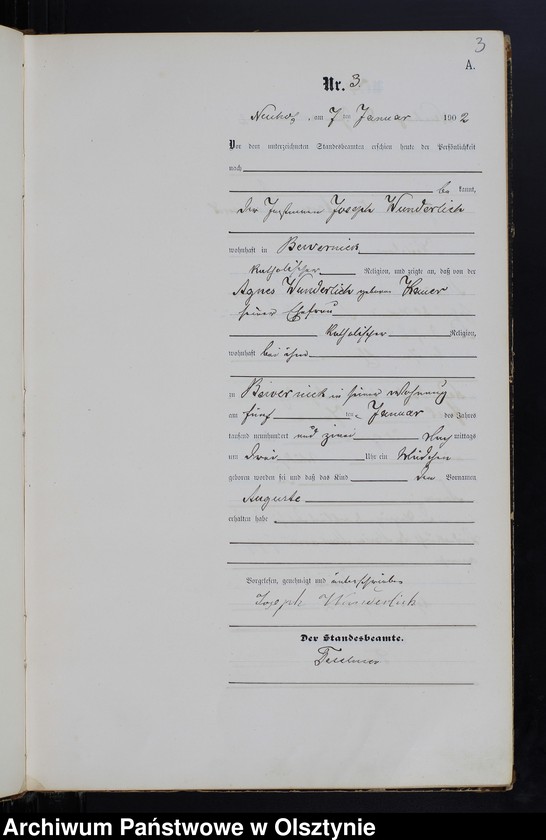 3
A.
Nr. 3.
Neuhof, am 7 ten Januar 1902
Vor dem unterzeichneten Standesbeamten erschien heute der Persönlichkeit
nach
be kannt,
der Instmann Joseph Wunderlich
wohnhaft in Bewernick
katholischer Religion, und zeigte an, daß von der
Agnes Wunderlich geborne
seiner Ehefrau
katholischer Religion,
wohnhaft bei ihm
zu Bewernick in seiner Wohnung
am fünf ten Januar des Jahres
tausend neunhundert und zwei Nach mittags
um drei Uhr ein Mädchen
geboren worden sei und daß das Kind den Vornamen
Auguste
erhalten habe
Vorgelesen, genehmigt und unterschrieben
Joseph Wunderlich
Der Standesbeamte.
Archiwum Państwowe w Olsztynie